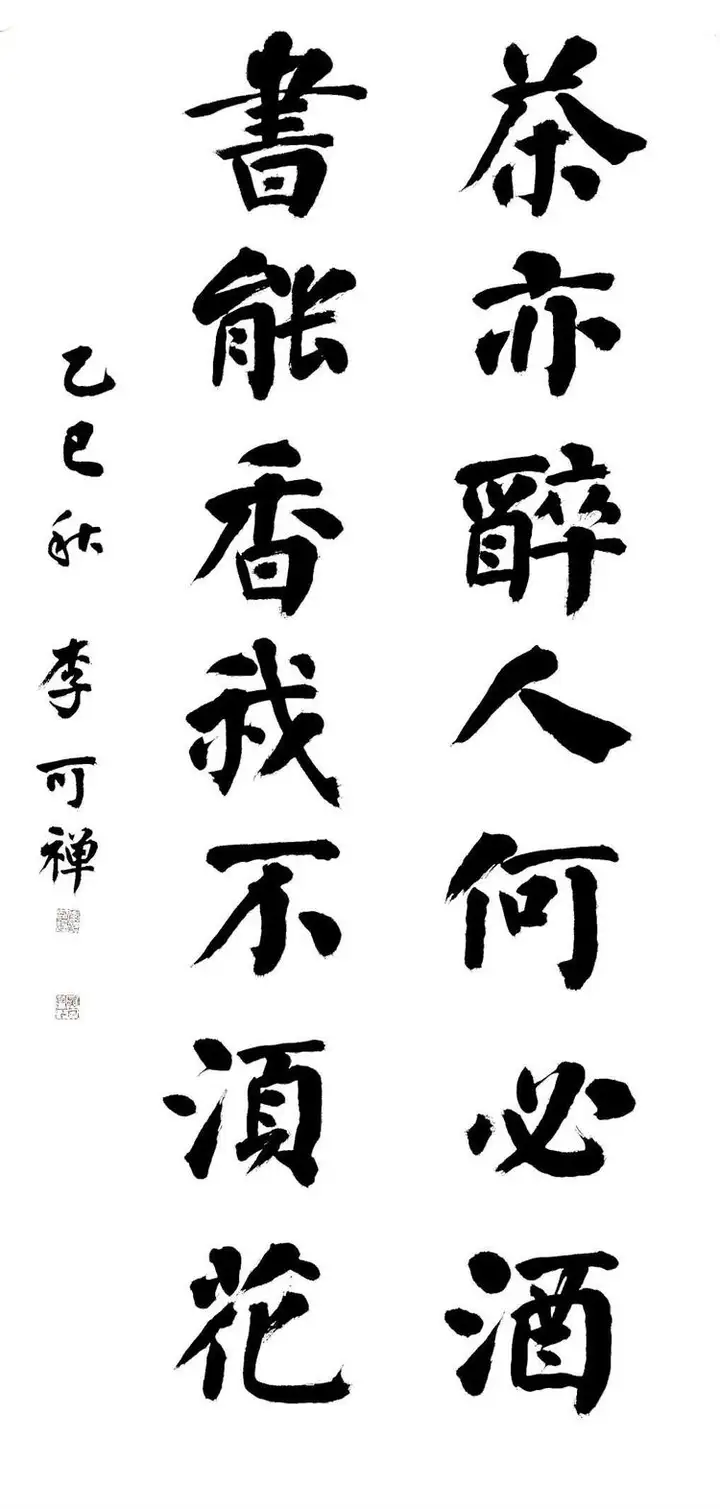 茶亦醉人何必酒
書能香我不須花
乙巳秋 李可禅